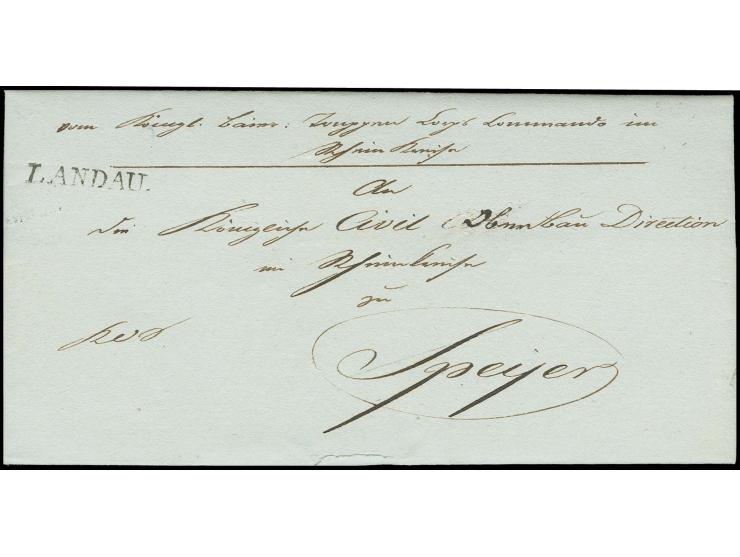 vom Königl. baier: Truppen Corps Commando im
Rhein Kreise
LANDAU.
An
die Königliche Civil Ober Bau Direction
im Rheinkreise
zu
Speijer